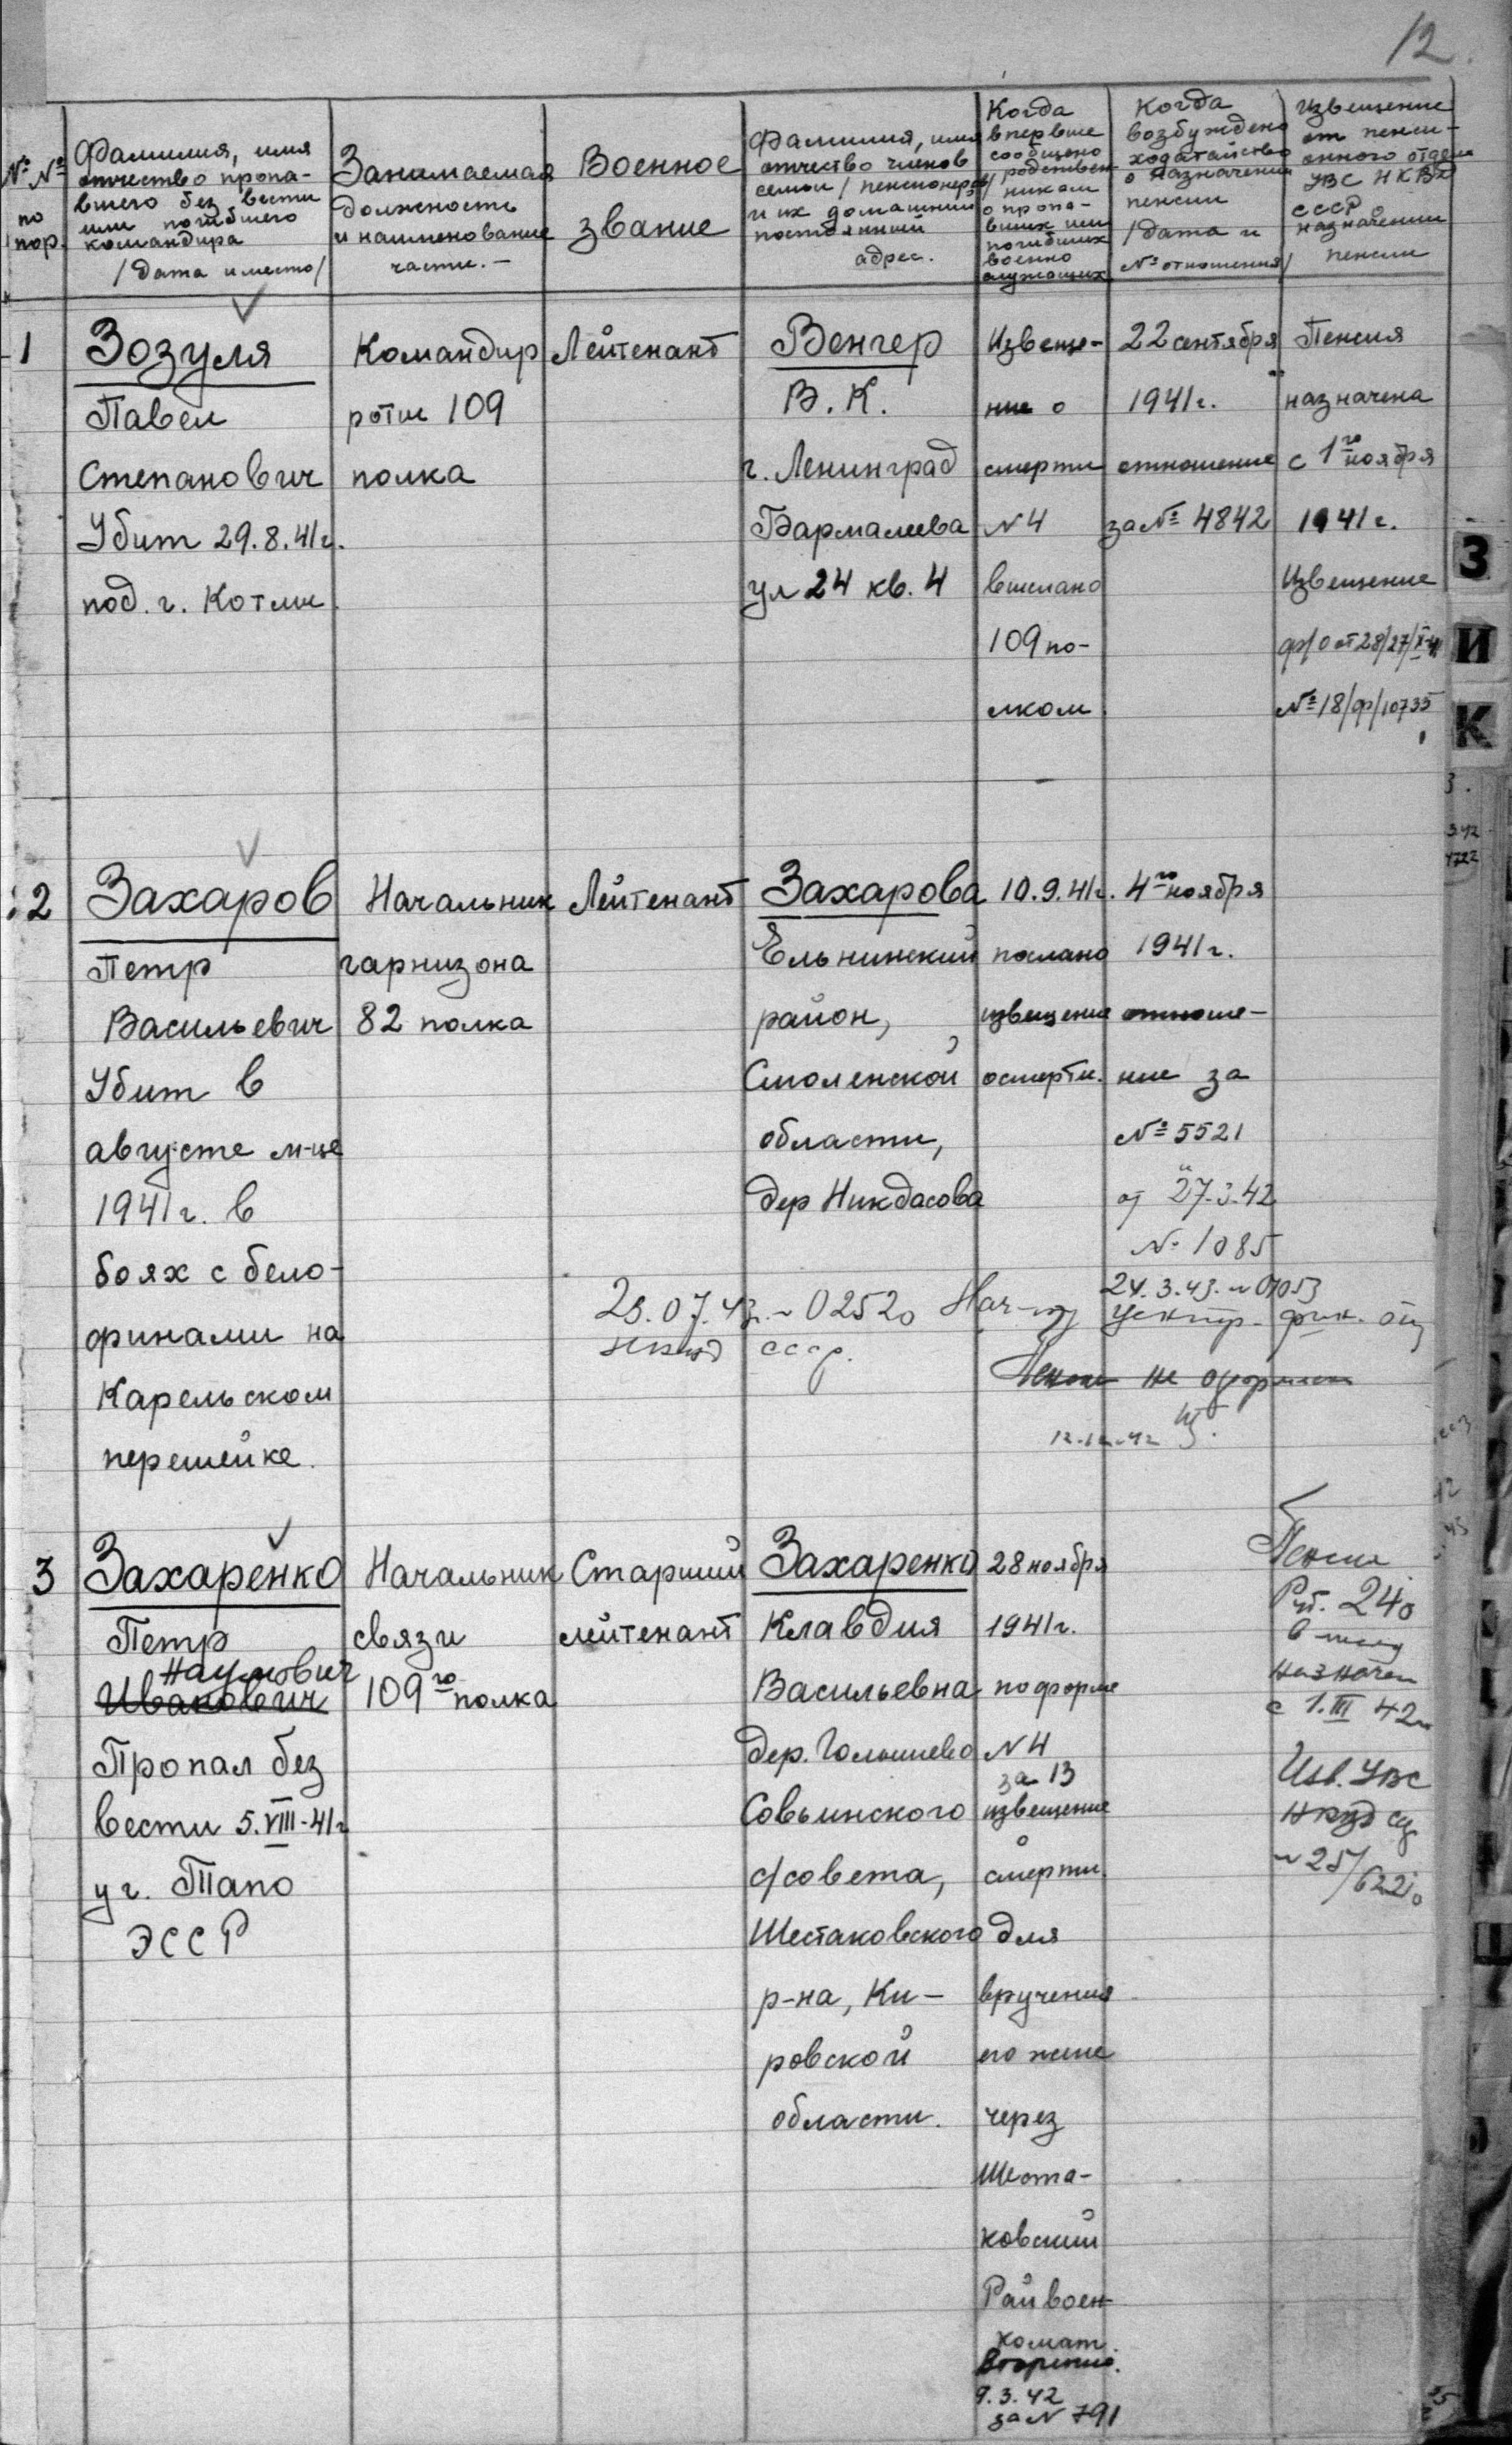 12.
№ №
по
пор.
Фамилия, имя
отчество пропа-
вшего без вести
или погибшего
командира
/дата и место/
Занимаемая
должность
и наименование
части.-
Военное
звание
Фамилия, имя
отчество членов
семьи /пенсионеров/
и их домашний
постоянный
адрес.
Когда
впервые
сообщено
родствен-
никам
о пропа-
вших или
погибших
военно
служащих
Когда
возбуждено
ходатайство
о назначении
пенсии
/дата и
№ отношения/
Извещение
от пенси-
онного отдела
УВС НКВД
СССР о
назначении
пенсии
1
Зозуля
Павел
Степанович
Убит 29.8.41г.
под. г. Котли
Командир
роты 109
полка
Лейтенант
Венгер
В. К.
г. Ленинград
Бармалеева
ул 24 кв. 4
Извеще-
ние о
смерти
N 4
выслано
109 по-
лком
22 сентября
1941г.
отношение
за № 4842
Пенсия
назначена
с 1го ноября
1941г.
Извещение
ф/о от 28/27/X-41
№ 18/ф/10735
2
Захаров
Петр
Васильевич
Убит в
августе м-це
1941г. в
боях с бело-
финами на
Карельском
перешейке.
Начальник
гарнизона
82 полка
Лейтенант
Захарова
Ельнинский
район,
Смоленской
области,
дер Никдасова
10.9.41г.
послано
извещение
о смерти.
4го ноября
1941г.
отноше-
ние за
№ 5521
от 27.3.42
№ 1085
24.3.43. N 07053
23.07.43. N 02520 Нач-ку Центр. фин. отд
НКВД СССР.
не оформлен
12.12.42
3
Захаренко
Петр
Наумович
Иванович
Пропал без
вести 5.VIII-41г
у г. Тапо
ЭССР
Начальник
связи
109го полка
Старший
лейтенант
Захаренко
Клавдия
Васильевна
дер. Голышево
Совьинского
с/совета,
Шестаковского
р-на, Ки-
ровской
области.
28 ноября
1941г.
по форме
N 4
за 13
извещение
о
смерти.
для
вручения
его жене
через
Шеста-
ковский
Райвоен-
комат.
Вторично.
9.3.42
за N 791
Пенсия
Руб. 240
в месяц
назначен
с 1.III 42г
Изв. УВС
НКВД
N 25/6220
З
И
К